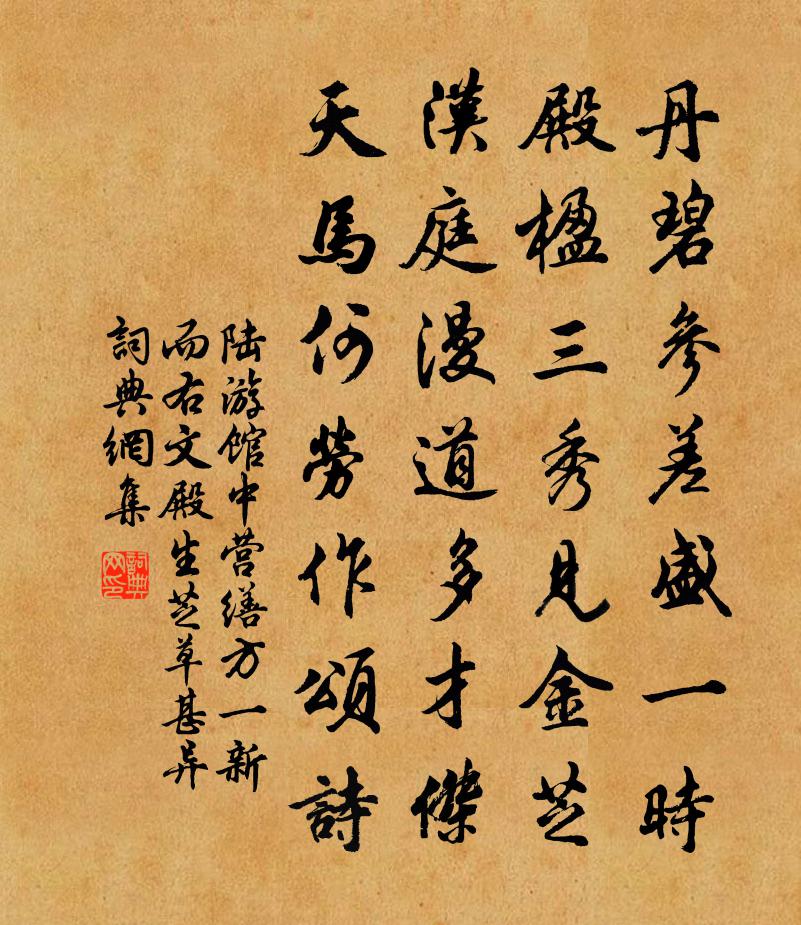 丹碧參差盛一時
殿楹三秀見金芝
漢庭漫道多才傑
天馬何勞作頌詩
陆游馆中营缮方一新
而右文殿生芝草甚异
詞典網集
詞典
网印